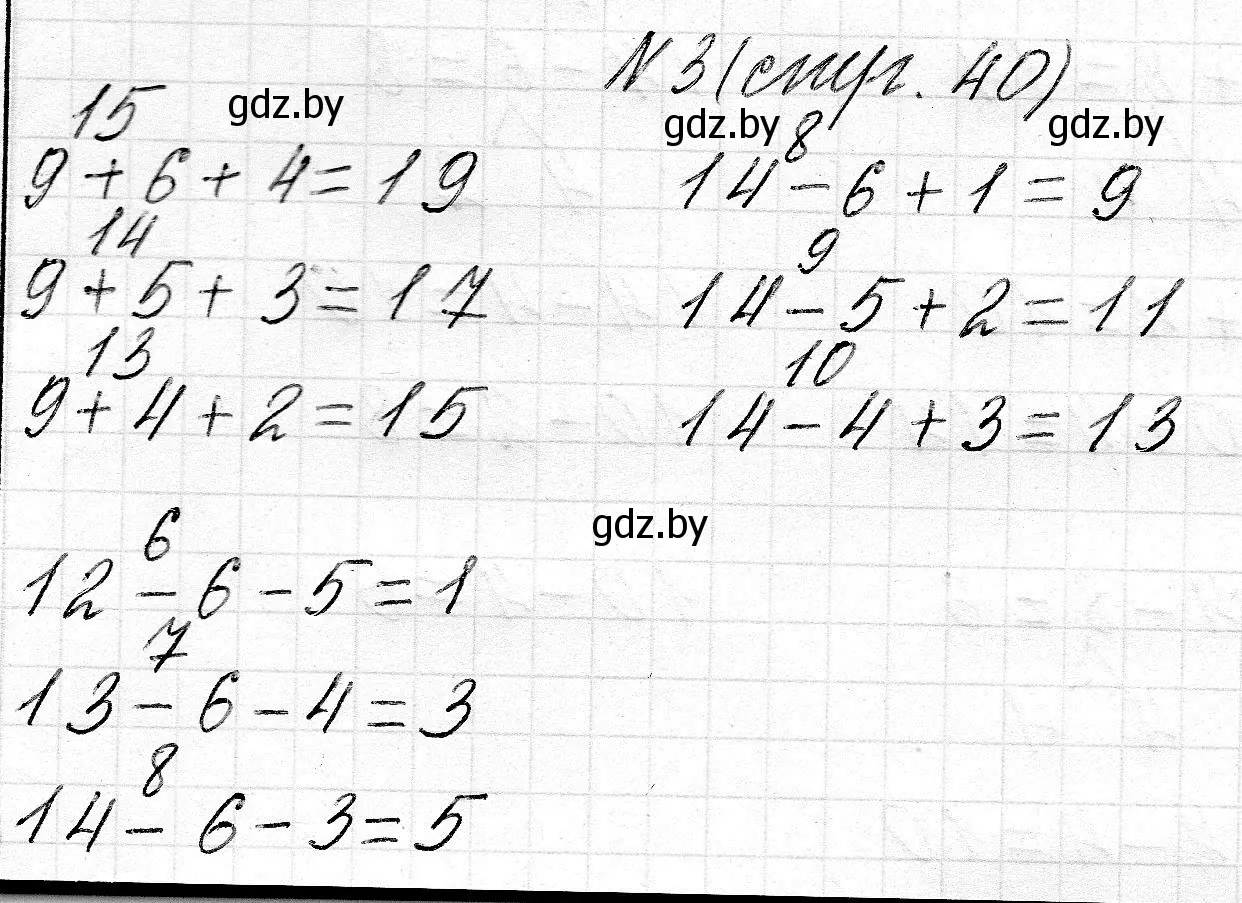 N 3 (стр. 40)
gdz.by
gdz.by
gdz.by
15
9 + 6 + 4 = 19
14
9 + 5 + 3 = 17
13
9 + 4 + 2 = 15
8
14 - 6 + 1 = 9
9
14 - 5 + 2 = 11
10
14 - 4 + 3 = 13
gdz.by
6
12 - 6 - 5 = 1
7
13 - 6 - 4 = 3
8
14 - 6 - 3 = 5